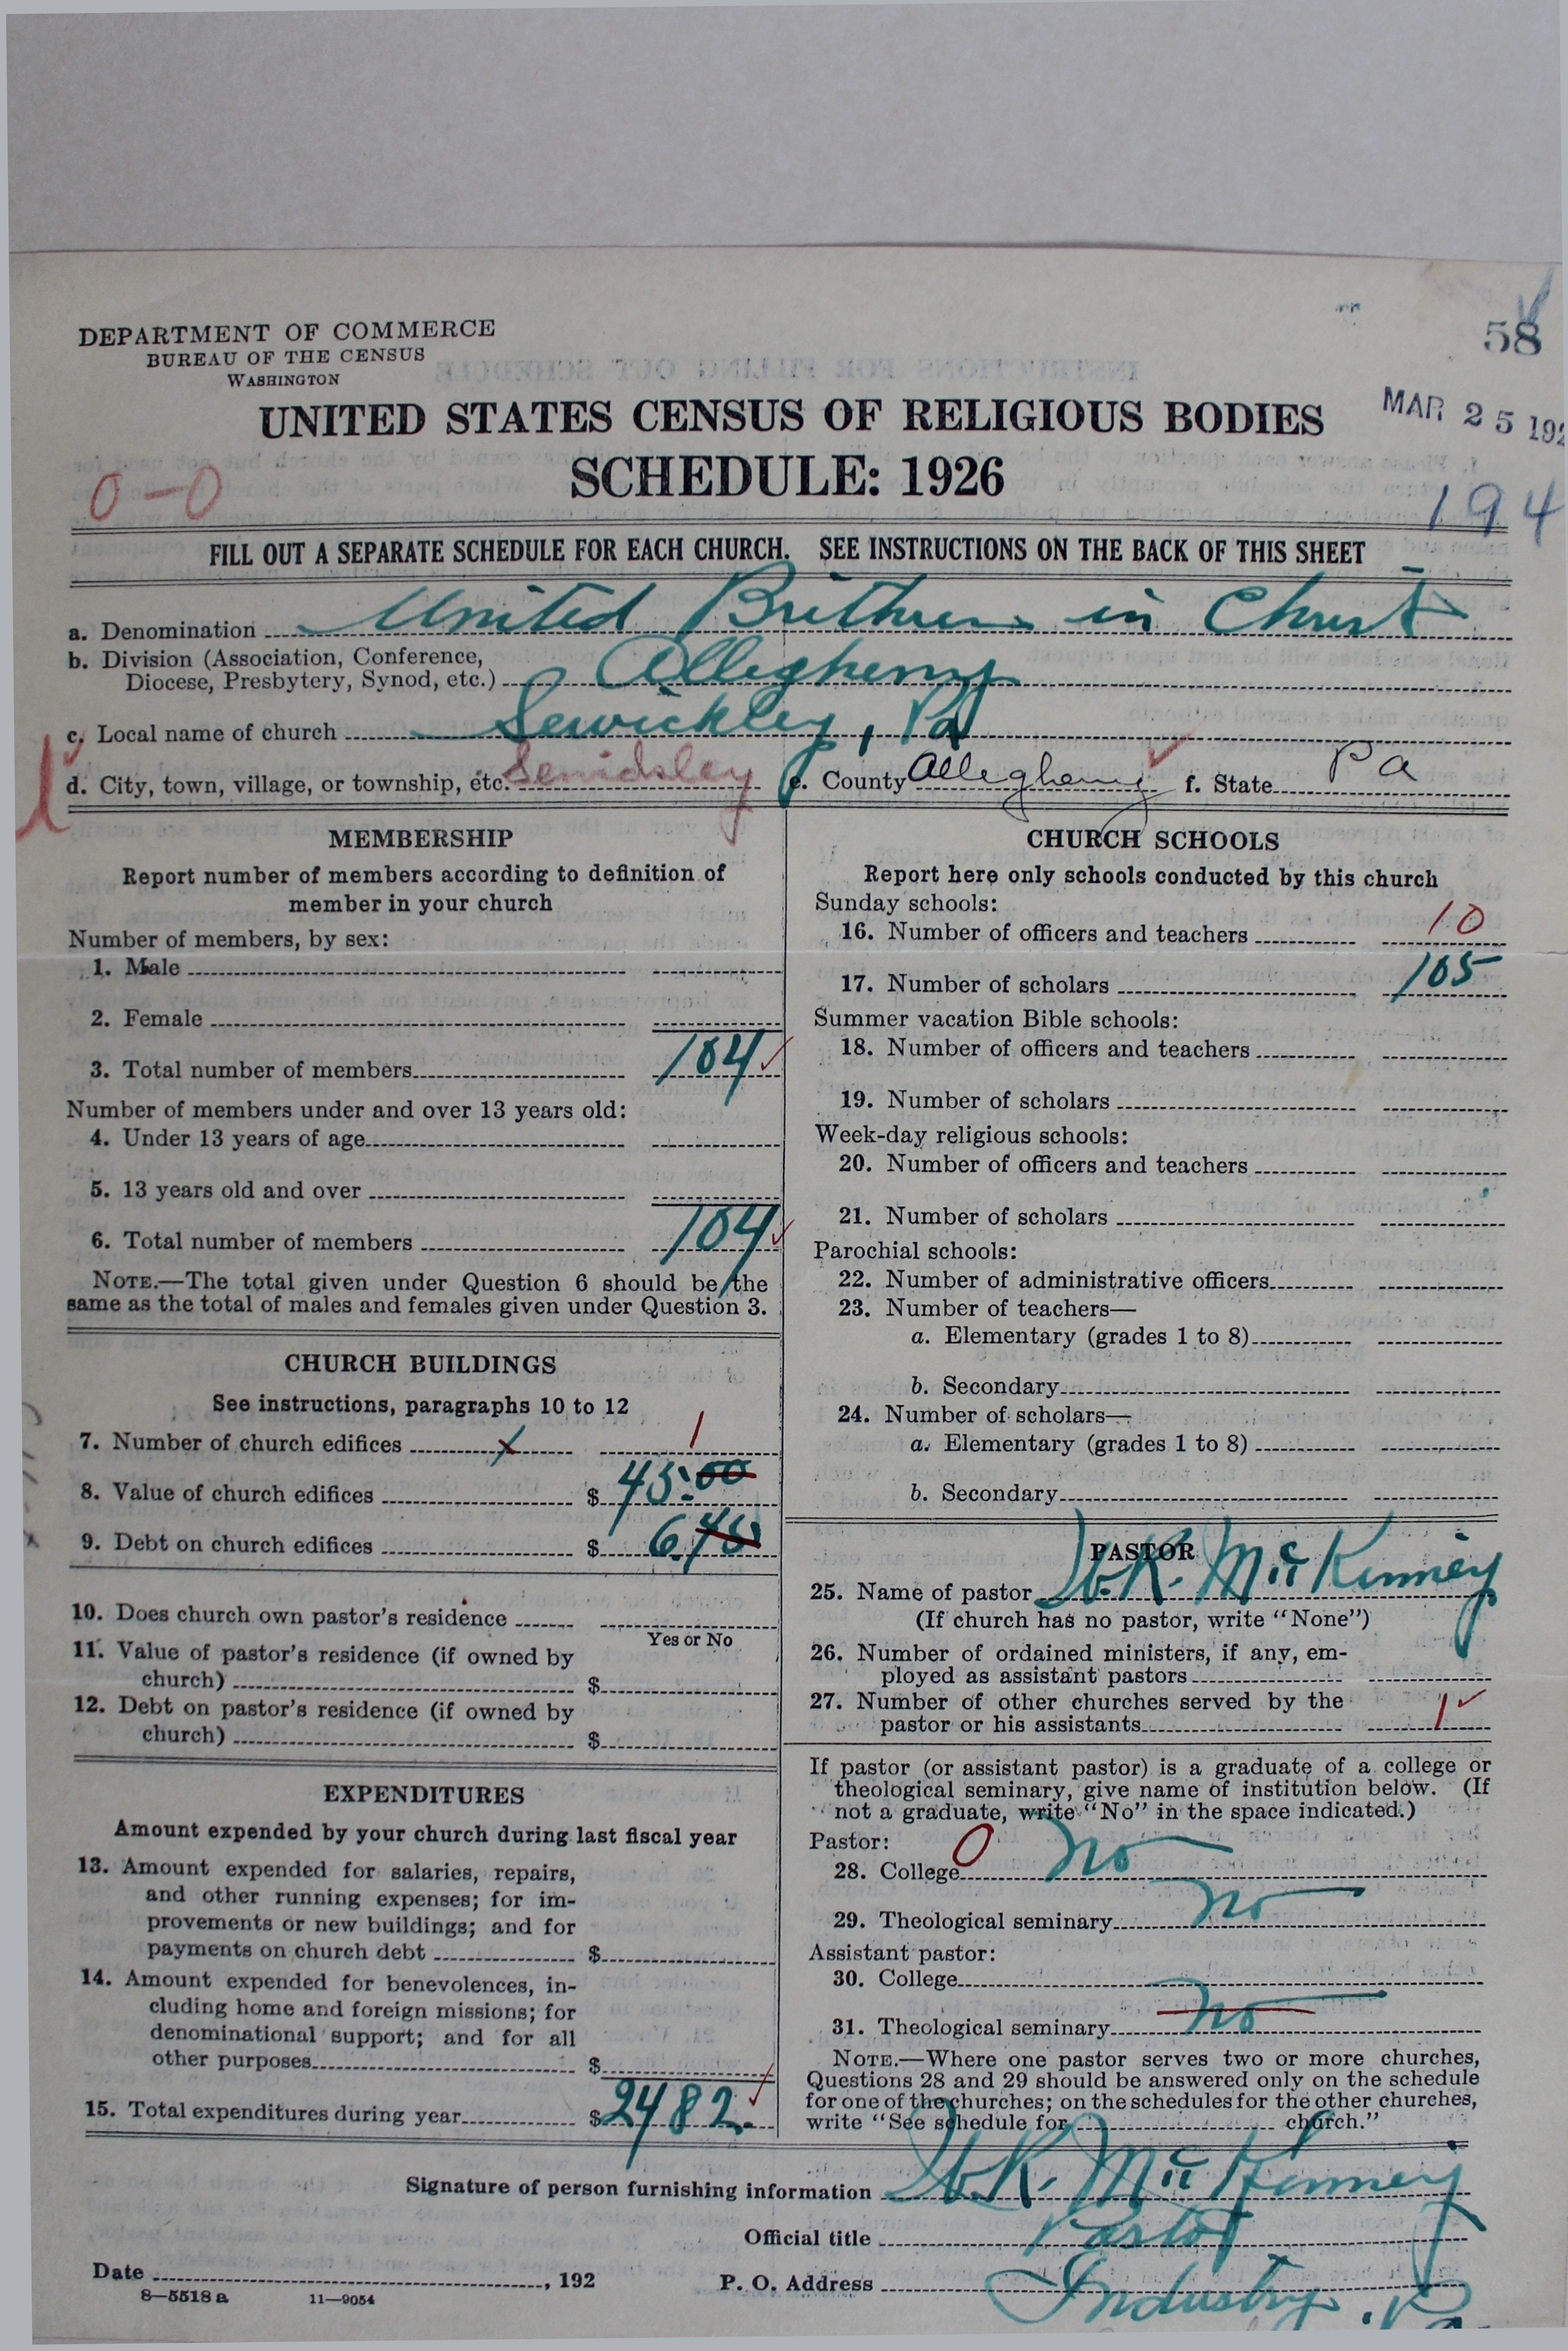 58
DEPARTMENT OF COMMERCE
BUREAU OF THE CENSUS
WASHINGTON
UNITED STATES CENSUS OF RELIGIOUS BODIES
MAR 25 192
SCHEDULE: 1926
0-0
194
FILL OUT A SEPARATE SCHEDULE FOR EACH CHURCH. SEE INSTRUCTIONS ON THE BACK OF THIS SHEET
a. Denomination United Brethren in Christ
b. Division (Association, Conference,
Diocese, Presbytery, Synod, etc.) Allegheny
c. Local name of church Sewickley, Pa
d. City, town, village, or township, etc. Sewickley e. County Allegheny f. State Pa
MEMBERSHIP
Report number of members according to definition of
member in your church
Number of members, by sex:
1. Male
2. Female
3. Total number of members 104
Number of members under and over 13 years old:
4. Under 13 years of age
5. 13 years old and over
6. Total number of members 104
NOTE.—The total given under Question 6 should be the
same as the total of males and females given under Question 3.
CHURCH BUILDINGS
See instructions, paragraphs 10 to 12
7. Number of church edifices x 1
8. Value of church edifices $ 45.00
9. Debt on church edifices $ 6.40
10. Does church own pastor's residence
Yes or No
11. Value of pastor's residence (if owned by
church) $
12. Debt on pastor's residence (if owned by
church) $
EXPENDITURES
Amount expended by your church during last fiscal year
13. Amount expended for salaries, repairs,
and other running expenses; for im-
provements or new buildings; and for
payments on church debt $
14. Amount expended for benevolences, in-
cluding home and foreign missions; for
denominational support; and for all
other purposes $
15. Total expenditures during year $ 2482.
CHURCH SCHOOLS
Report here only schools conducted by this church
Sunday schools:
16. Number of officers and teachers 10
17. Number of scholars 105
Summer vacation Bible schools:
18. Number of officers and teachers
19. Number of scholars
Week-day religious schools:
20. Number of officers and teachers
21. Number of scholars
Parochial schools:
22. Number of administrative officers
23. Number of teachers—
a. Elementary (grades 1 to 8)
b. Secondary
24. Number of scholars—
a. Elementary (grades 1 to 8)
b. Secondary
PASTOR
25. Name of pastor W.R. McKinney
(If church has no pastor, write "None")
26. Number of ordained ministers, if any, em-
ployed as assistant pastors
27. Number of other churches served by the
pastor or his assistants 1
If pastor (or assistant pastor) is a graduate of a college or
theological seminary, give name of institution below. (If
not a graduate, write "No" in the space indicated.)
Pastor:
28. College 0 No
29. Theological seminary No
Assistant pastor:
30. College
31. Theological seminary No
NOTE.—Where one pastor serves two or more churches,
Questions 28 and 29 should be answered only on the schedule
for one of the churches; on the schedules for the other churches,
write "See schedule for church."
Signature of person furnishing information W.R. McKinney
Official title Pastor
Date , 192 P. O. Address Industry, Pa
8—5518 a 11—9054